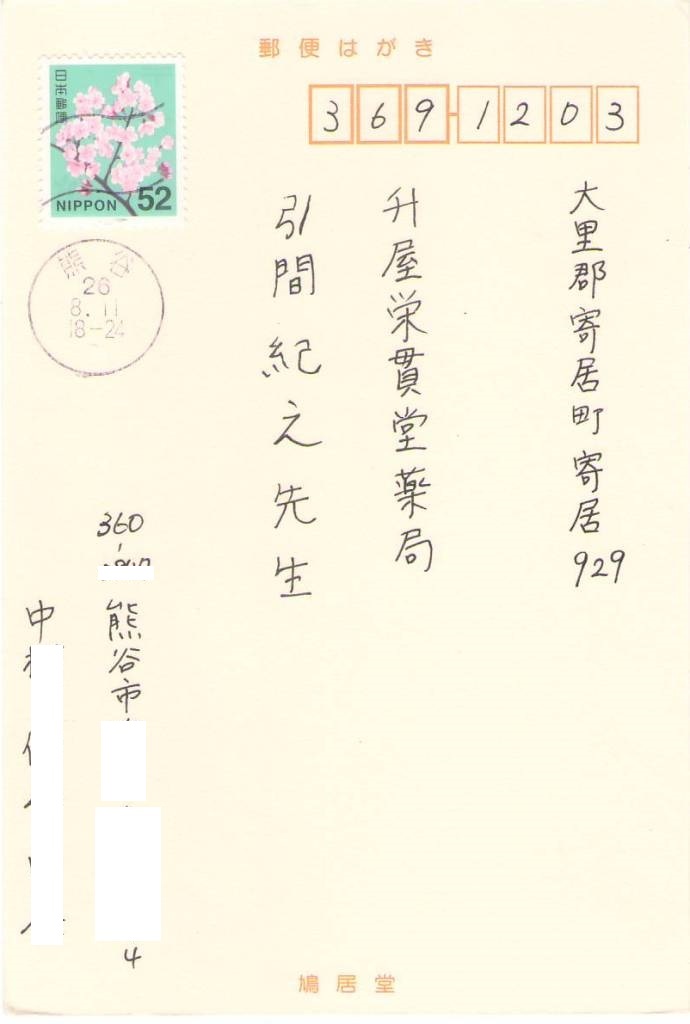 郵便はがき
日本郵便
NIPPON 52
熊谷
26
8.11
18-24
369-1203
大里郡寄居町寄居929
升屋栄貫堂薬局
引間紀之先生
360
熊谷市
4
中
鳩居堂